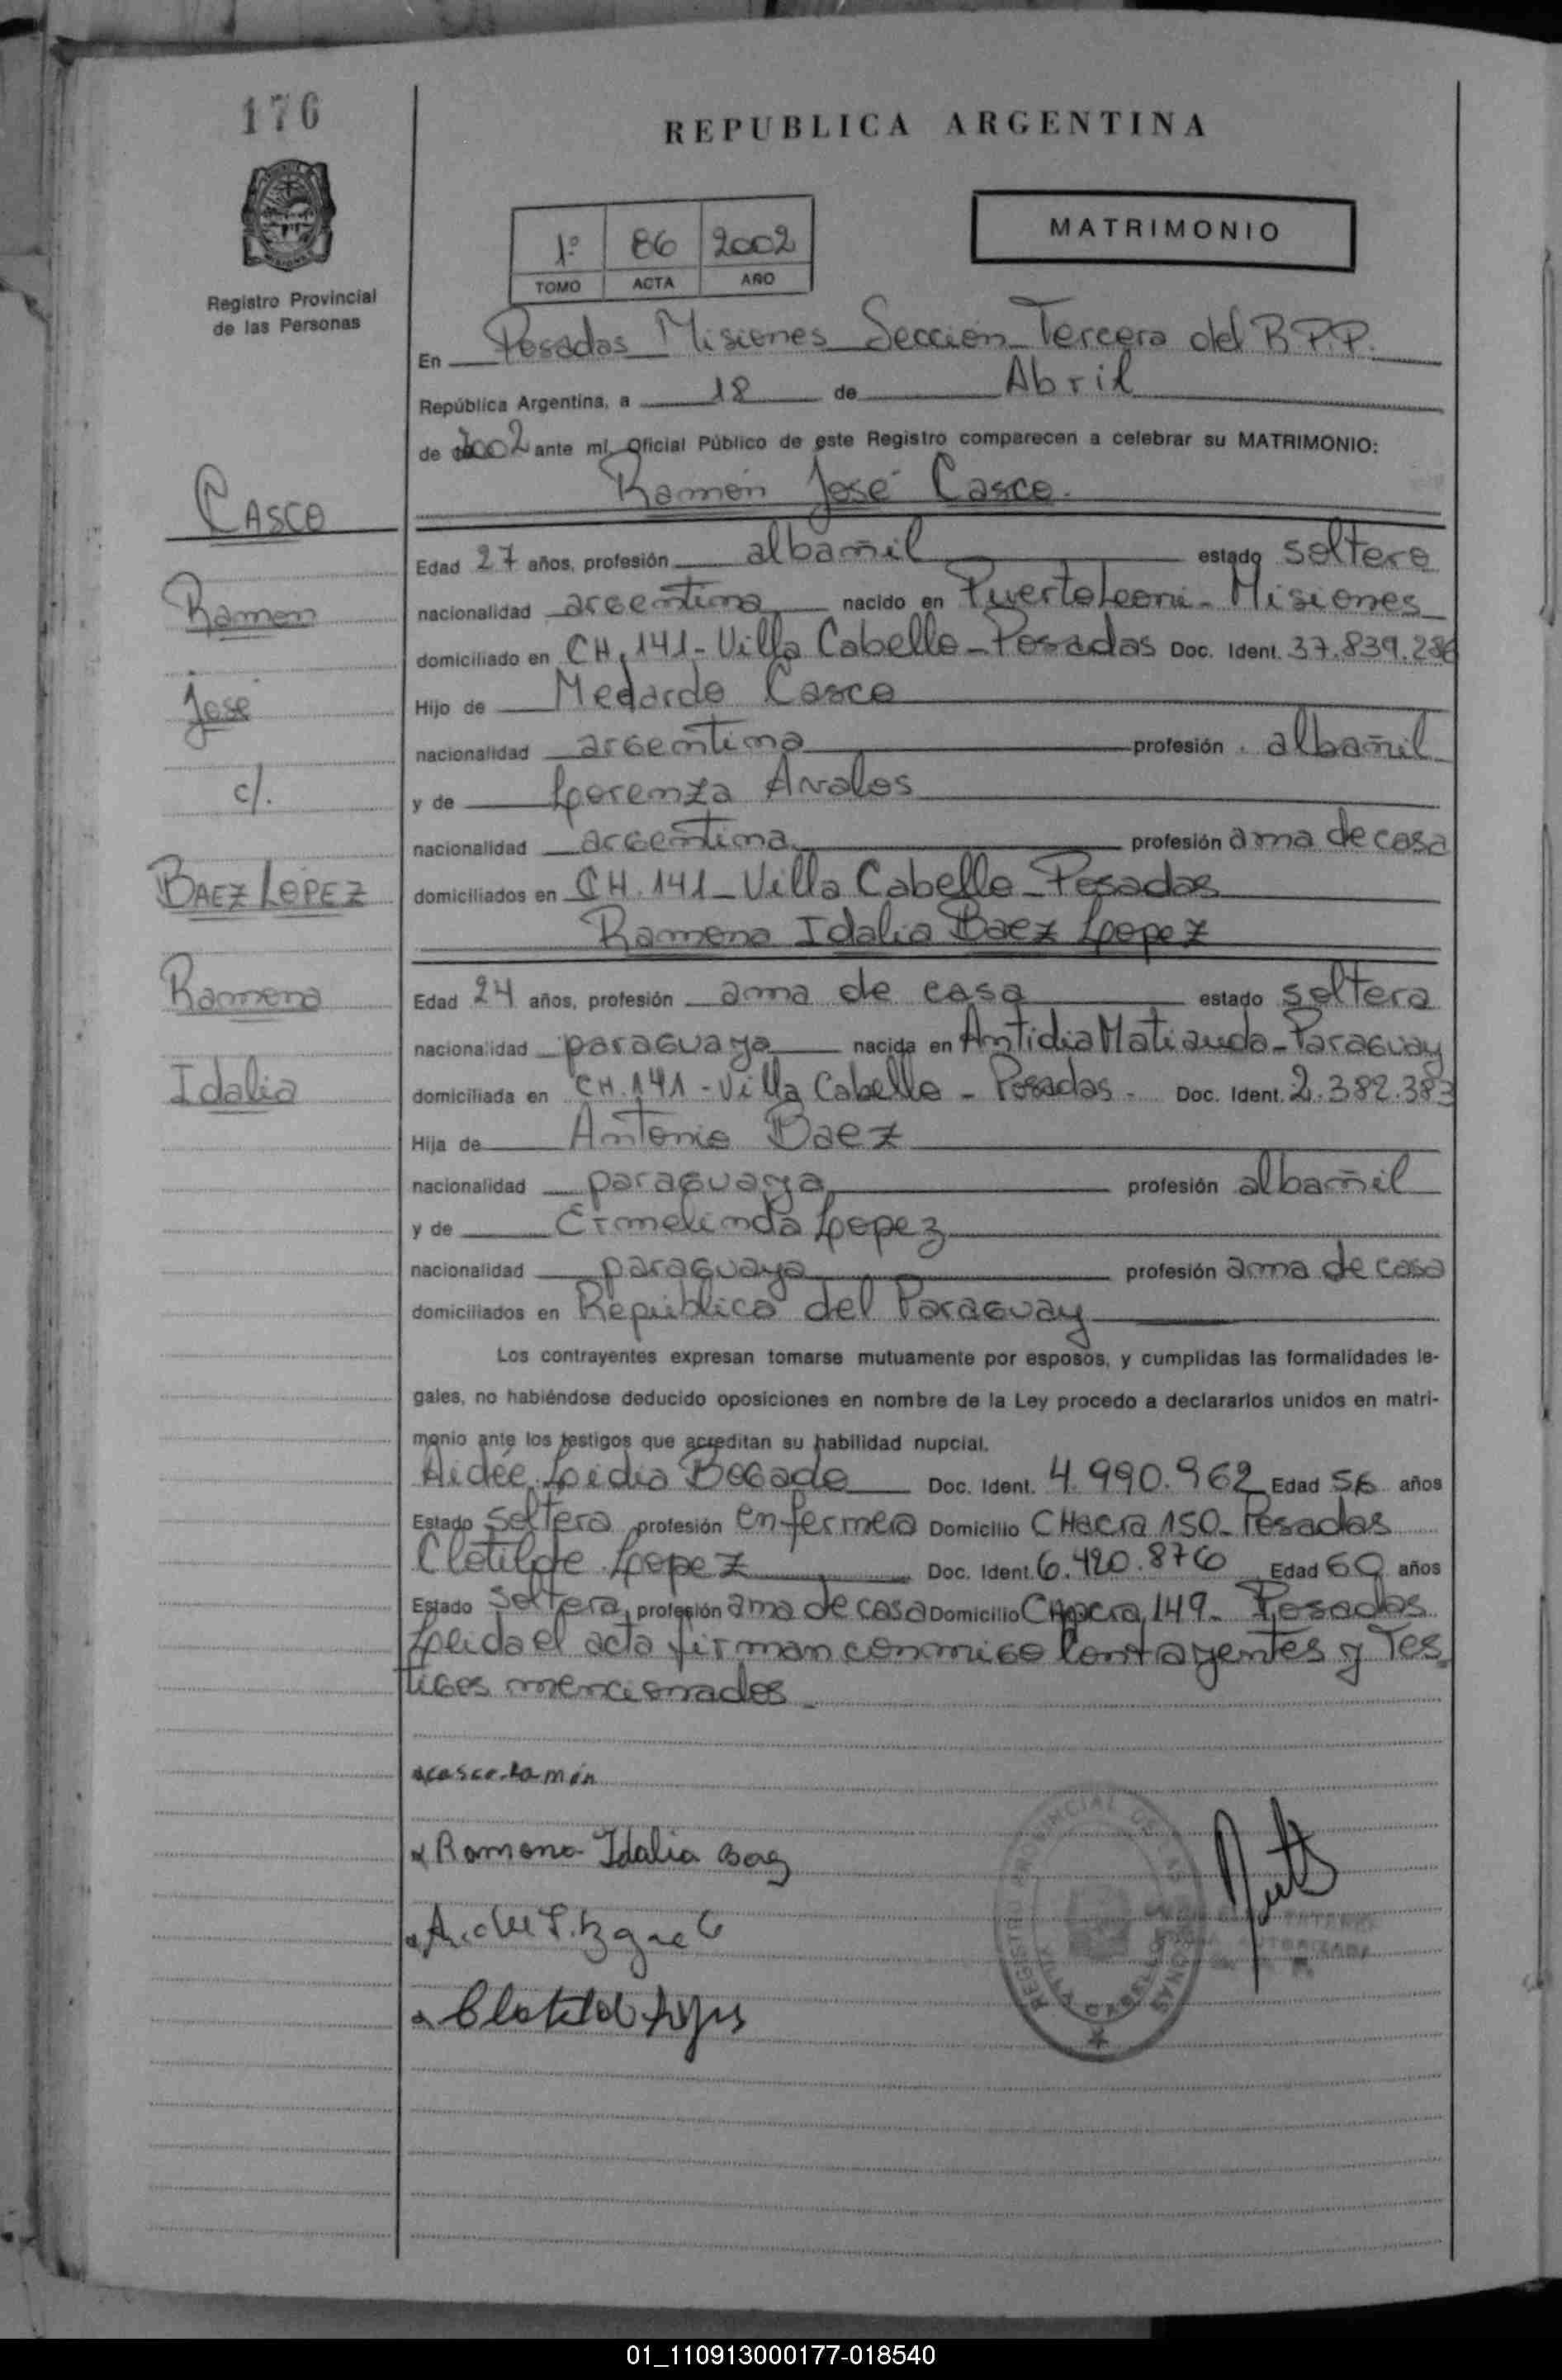 176
REPUBLICA ARGENTINA
MATRIMONIO
1º 86 2002
TOMO ACTA AÑO
Registro Provincial
de las Personas
En Posadas Misiones Sección Tercera del R.P.P.
República Argentina, a 18 de Abril
de 2002 ante mí, Oficial Público de este Registro comparecen a celebrar su MATRIMONIO:
Ramón José Casco.
CASCO
Edad 27 años, profesión albañil estado soltero
Ramón
nacionalidad argentina nacido en Puerto Leoni - Misiones
domiciliado en CH. 141 - Villa Cabello - Posadas Doc. Ident. 37.839.286
José
Hijo de Medardo Casco
nacionalidad argentina profesión albañil
c/.
y de Lorenza Avalos
nacionalidad argentina profesión ama de casa
BAEZ LOPEZ
domiciliados en CH. 141 - Villa Cabello - Posadas
Ramona Idalia Baez Lopez
Ramona
Edad 24 años, profesión ama de casa estado soltera
nacionalidad paraguaya nacida en Antidia Matiauda - Paraguay
Idalia
domiciliada en CH. 141 - Villa Cabello - Posadas - Doc. Ident. 2.382.383
Hija de Antonio Baez
nacionalidad paraguaya profesión albañil
y de Ermelinda Lopez
nacionalidad paraguaya profesión ama de casa
domiciliados en República del Paraguay
Los contrayentes expresan tomarse mutuamente por esposos, y cumplidas las formalidades le-
gales, no habiéndose deducido oposiciones en nombre de la Ley procedo a declararlos unidos en matri-
monio ante los testigos que acreditan su habilidad nupcial.
Aidée Leidia Bogado Doc. Ident. 4.990.962 Edad 56 años
Estado soltera profesión enfermera Domicilio CHacra 150 - Posadas
Clotilde Lopez Doc. Ident. 6.420.876 Edad 60 años
Estado soltera profesión ama de casa Domicilio CHacra 149 - Posadas
Leida el acta firman conmigo Contrayentes y Tes
tigos mencionados -
x casco Ramón
x Ramona Idalia Baez
x Clotilde Lopez
REGISTRO PROVINCIAL DE LAS PERSONAS
VILLA CABELLO
01_110913000177-018540